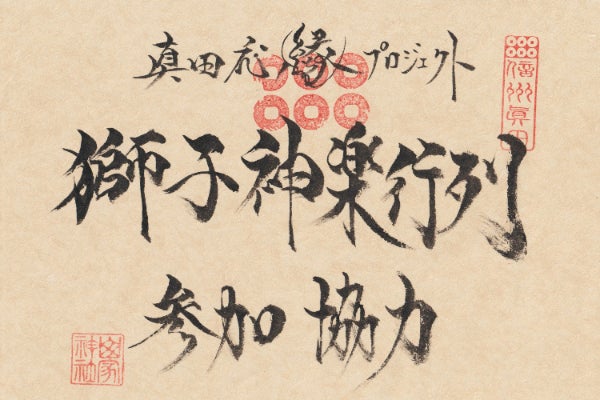 真田応(縁)プロジェクト
信州真田
獅子神楽行列
参加協力
山家神社